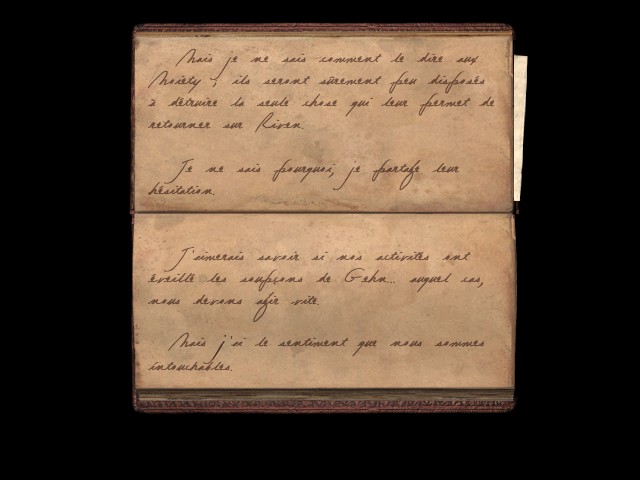 Mais je ne sais comment le dire aux
Moiety ; ils seront sûrement peu disposés
à détruire la seule chose qui leur permet de
retourner sur Riven.
Je ne sais pourquoi, je partage leur
hésitation.
J'aimerais savoir si nos activités ont
éveillé les soupçons de Gehn... auquel cas,
nous devons agir vite.
Mais j'ai le sentiment que nous sommes
intouchables.